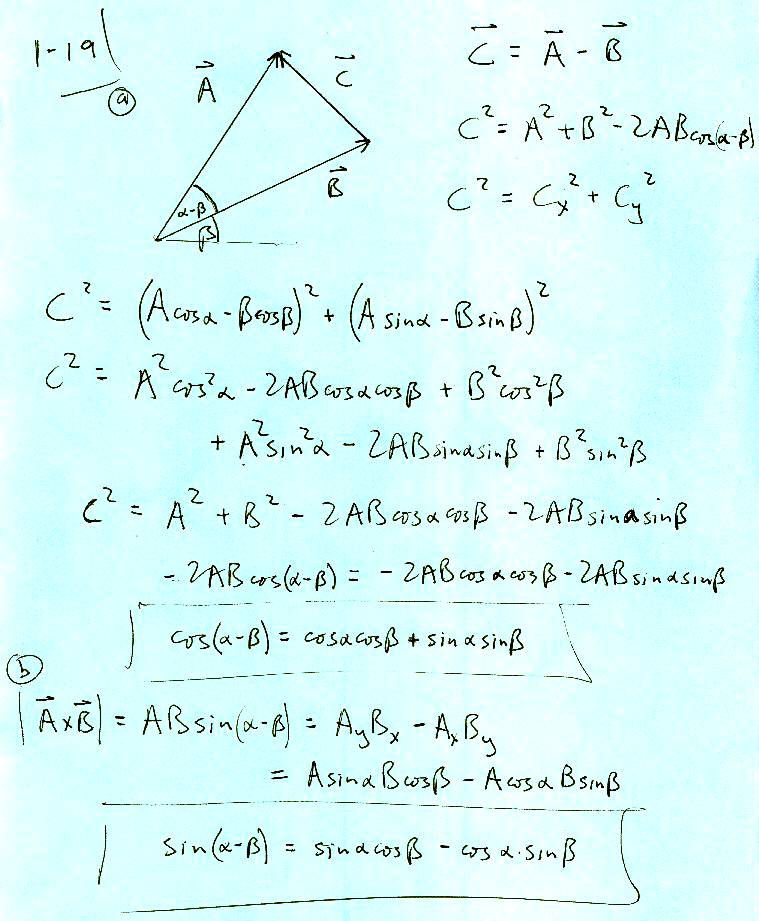 1-19
ⓐ
A⃗
C⃗
B⃗
α-β
β
C⃗ = A⃗ - B⃗
C² = A² + B² - 2ABcos(α-β)
C² = Cx² + Cy²
C² = (Acosα - Bcosβ)² + (A sinα - B sinβ)²
C² = A²cos²α - 2ABcosαcosβ + B²cos²β
+ A²sin²α - 2ABsinαsinβ + B²sin²β
C² = A² + B² - 2ABcosαcosβ - 2ABsinαsinβ
- 2ABcos(α-β) = - 2ABcosαcosβ - 2ABsinαsinβ
cos(α-β) = cosαcosβ + sinαsinβ
ⓑ
|A⃗×B⃗| = ABsin(α-β) = AyBx - AxBy
= AsinαBcosβ - AcosαBsinβ
sin(α-β) = sinαcosβ - cosα·sinβ